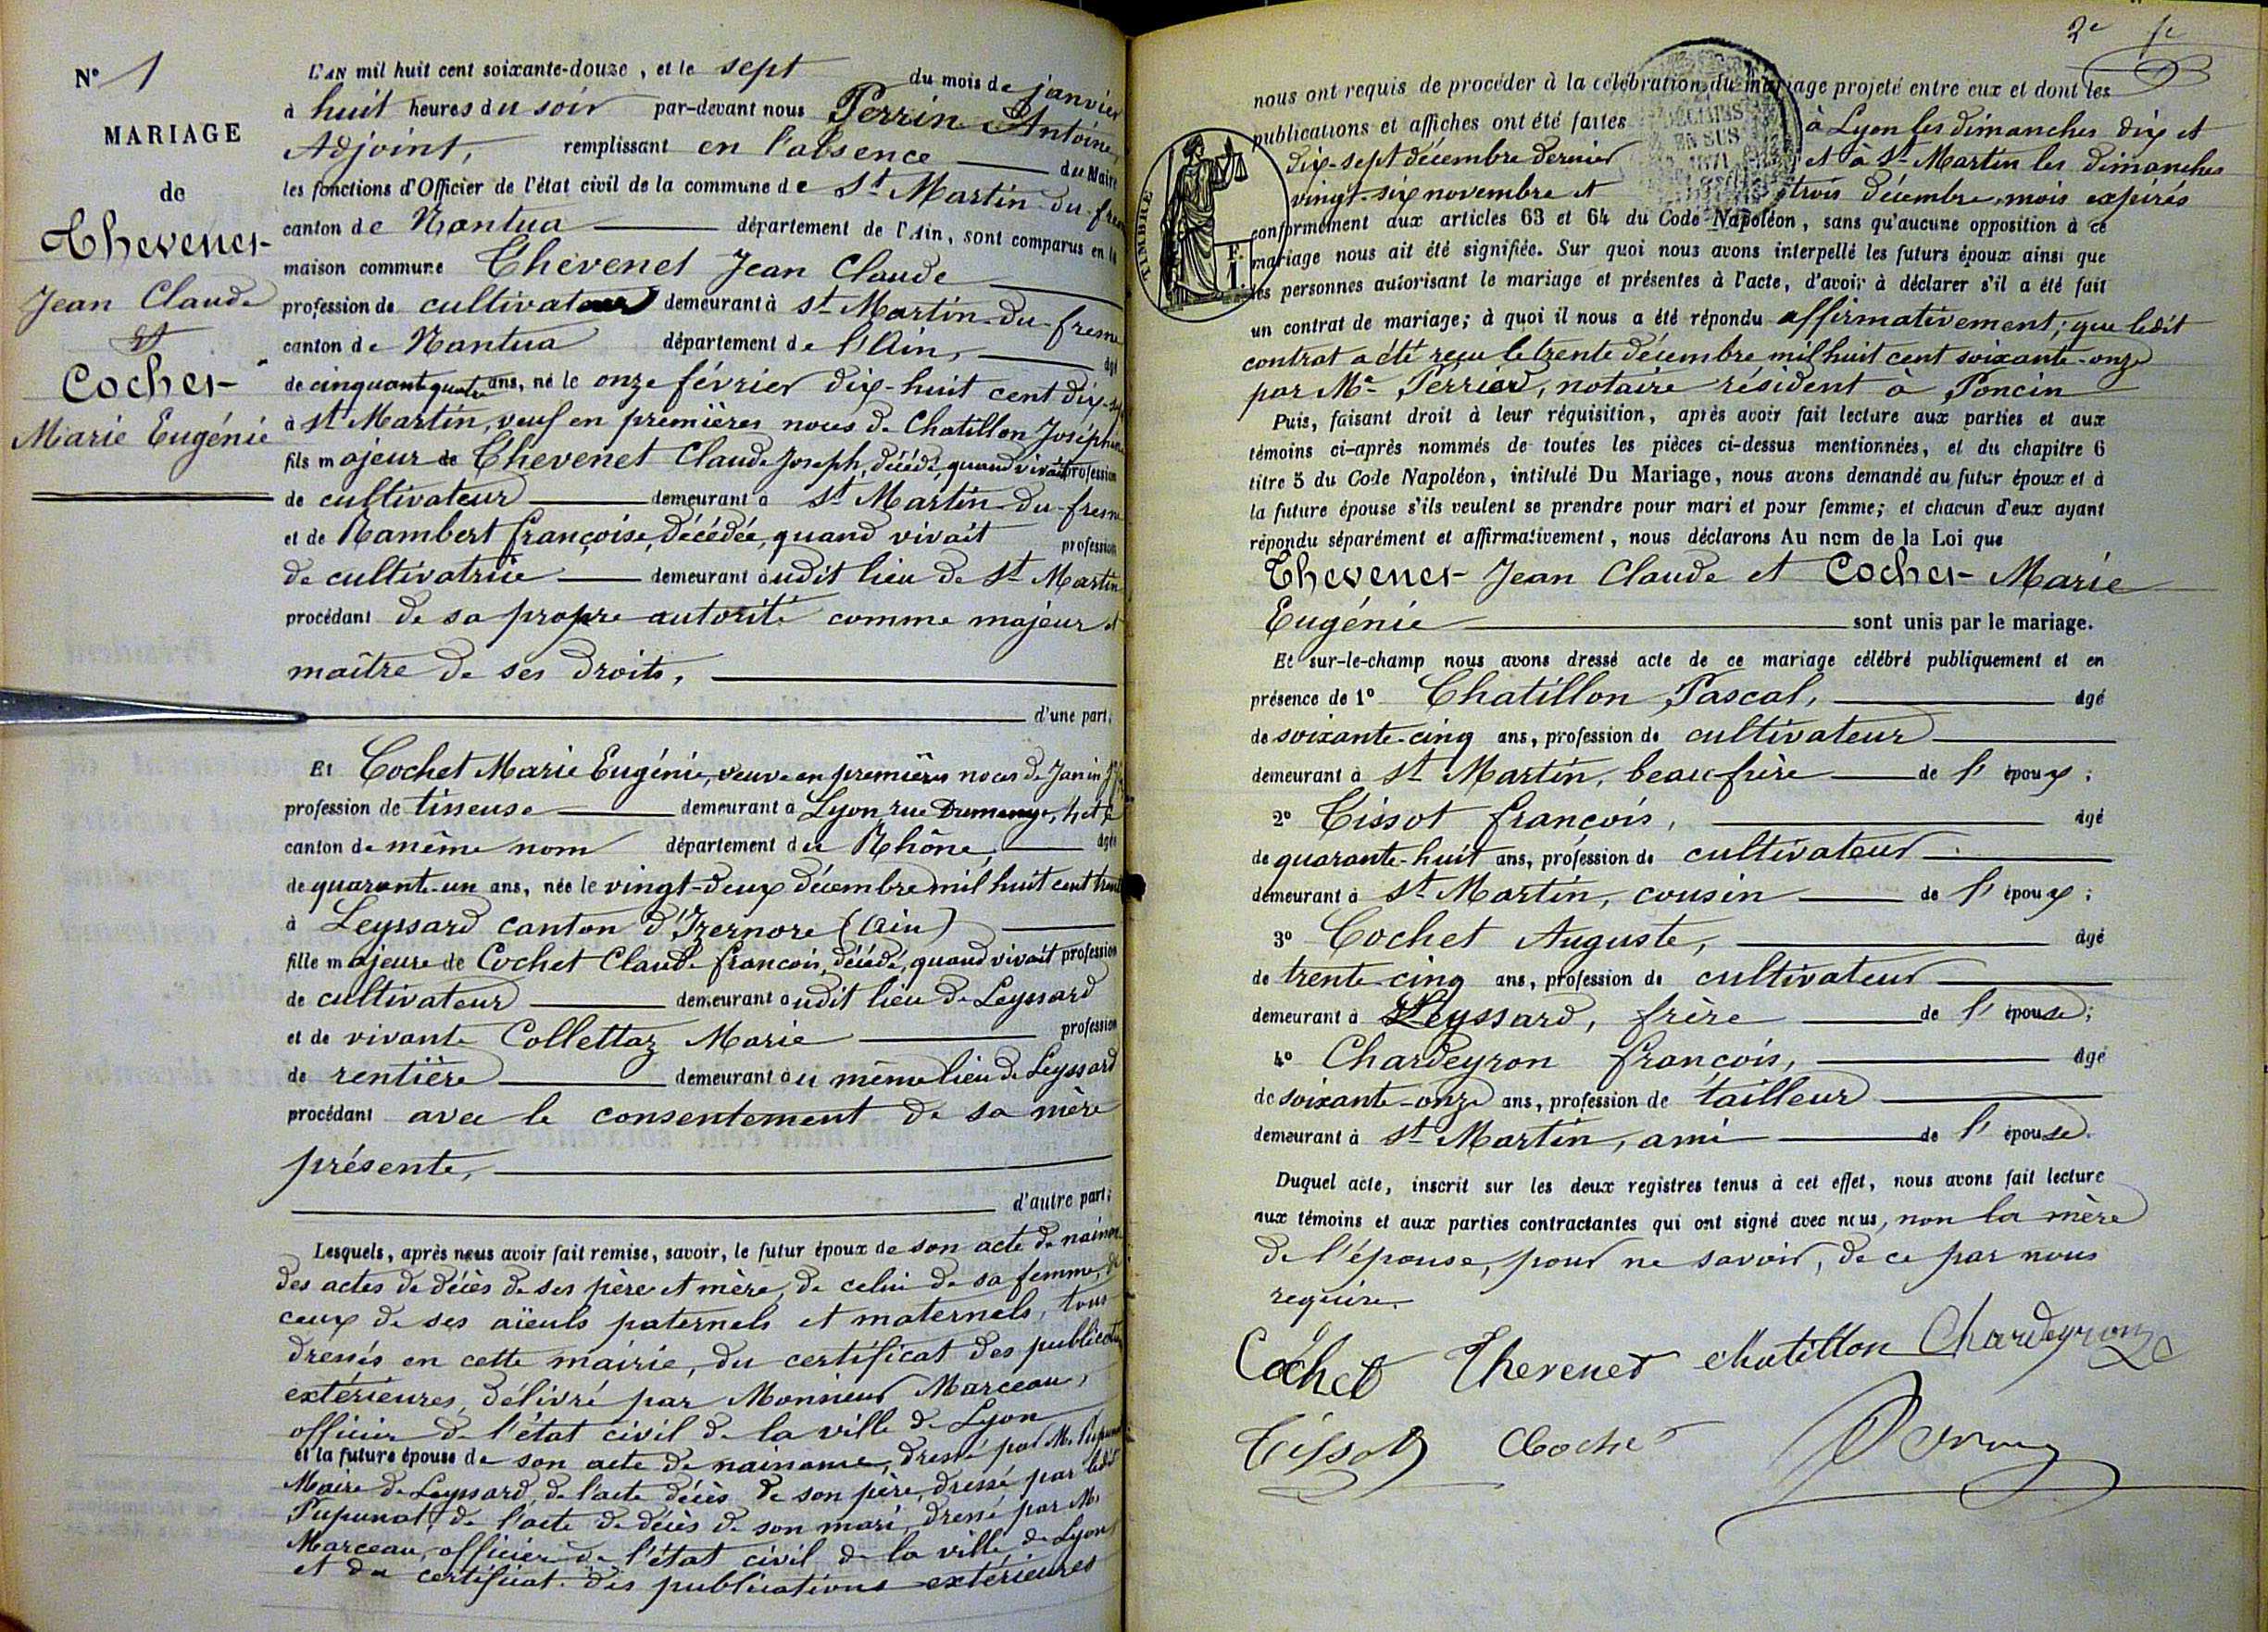 N° 1
MARIAGE
de
Thevenet
Jean Claude
et
Cochet
Marie Eugénie
L'AN mil huit cent soixante-douze, et le sept du mois de janvier
à huit heures du soir par-devant nous Perrin Antoine,
Adjoint, remplissant en l'absence du Maire
les fonctions d'Officier de l'état civil de la commune de St Martin-du-fresne
canton de Nantua département de l'Ain, sont comparus en la
maison commune Thevenet Jean Claude
profession de cultivateur demeurant à St Martin-du-fresne
canton de Nantua département de l'Ain, âgé
de cinquante quatre ans, né le onze février dix-huit cent dix-sept
à St Martin, veuf en premières noces de Chatillon Joséphine
fils majeur de Thevenet Claude Joseph, décédé, quand vivait profession
de cultivateur demeurant à St Martin-du-fresne
et de Rambert françoise, décédée, quand vivait profession
de cultivatrice demeurant audit lieu de St Martin
procédant de sa propre autorité comme majeur et
maître de ses droits,
d'une part;
Et Cochet Marie Eugénie, veuve en premières noces de Janin
profession de tisseuse demeurant à Lyon, rue Dumenge, 4, et
canton de même nom département du Rhône, âgée
de quarante-un ans, née le vingt-deux décembre mil huit cent trente
à Leyssard canton d'Izernore (Ain)
fille majeure de Cochet Claude françois, décédé, quand vivait profession
de cultivateur demeurant audit lieu de Leyssard
et de vivante Collettaz Marie profession
de rentière demeurant au même lieu de Leyssard
procédant avec le consentement de sa mère
présente,
d'autre part;
Lesquels, après nous avoir fait remise, savoir, le futur époux de son acte de naissance
des actes de décès de ses père et mère, de celui de sa femme, de
ceux de ses aïeuls paternels et maternels, tous
dressés en cette mairie, du certificat des publications
extérieures, délivré par Monsieur Marceau,
officier de l'état civil de la ville de Lyon
et la future épouse de son acte de naissance, dressé par M. Pupunat
Maire de Leyssard, de l'acte décès de son père, dressé par ledit
Pupunat, de l'acte de décès de son mari, dressé par M.
Marceau, officier de l'état civil de la ville de Lyon
et du certificat des publications extérieures
2e
nous ont requis de procéder à la célébration du mariage projeté entre eux et dont les
publications et affiches ont été faites à Lyon les dimanches dix et
dix-sept décembre dernier et à St Martin les dimanches
vingt-six novembre et trois décembre, mois expirés
conformément aux articles 63 et 64 du Code Napoléon, sans qu'aucune opposition à ce
mariage nous ait été signifiée. Sur quoi nous avons interpellé les futurs époux ainsi que
les personnes autorisant le mariage et présentes à l'acte, d'avoir à déclarer s'il a été fait
un contrat de mariage; à quoi il nous a été répondu affirmativement; que ledit
contrat a été reçu le trente décembre mil huit cent soixante-onze
par Me Perrier, notaire résident à Poncin
Puis, faisant droit à leur réquisition, après avoir fait lecture aux parties et aux
témoins ci-après nommés de toutes les pièces ci-dessus mentionnées, et du chapitre 6
titre 5 du Code Napoléon, intitulé Du Mariage, nous avons demandé au futur époux et à
la future épouse s'ils veulent se prendre pour mari et pour femme; et chacun d'eux ayant
répondu séparément et affirmativement, nous déclarons Au nom de la Loi que
Thevenet Jean Claude et Cochet Marie
Eugénie sont unis par le mariage.
Et sur-le-champ nous avons dressé acte de ce mariage célébré publiquement et en
présence de 1° Chatillon Pascal, âgé
de soixante-cinq ans, profession de cultivateur
demeurant à St Martin, beaufrère de l'époux;
2° Tissot françois, âgé
de quarante-huit ans, profession de cultivateur
demeurant à St Martin, cousin de l'époux;
3° Cochet Auguste, âgé
de trente-cinq ans, profession de cultivateur
demeurant à Leyssard, frère de l'épouse;
4° Chardeyron françois, âgé
de soixante-onze ans, profession de tailleur
demeurant à St Martin, ami de l'épouse.
Duquel acte, inscrit sur les deux registres tenus à cet effet, nous avons fait lecture
aux témoins et aux parties contractantes qui ont signé avec nous, non la mère
de l'épouse, pour ne savoir, de ce par nous
requise.
Cochet Thevenet chatillon Chardeyron
Tissot Cochet Perrin
TIMBRE
1 F.
EN SUS
1871